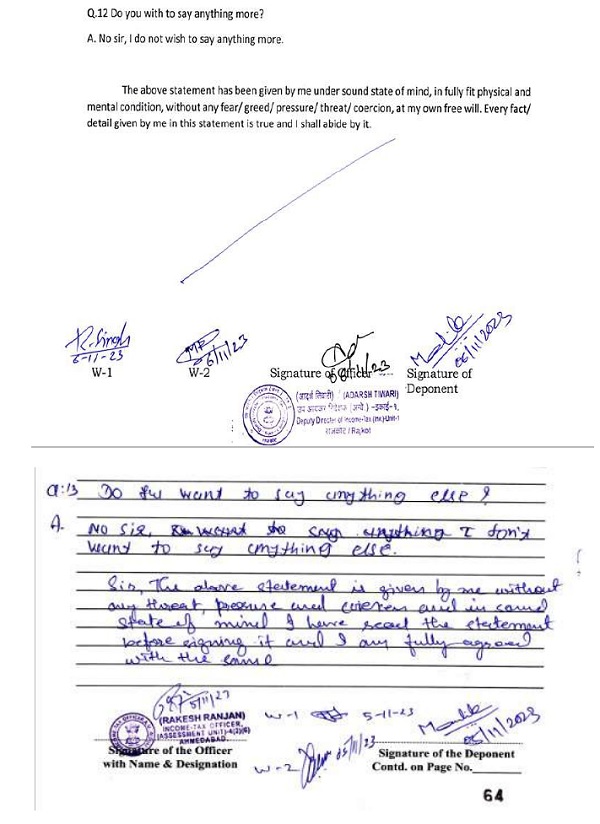 Q.12 Do you with to say anything more?
A. No sir, I do not wish to say anything more.
The above statement has been given by me under sound state of mind, in fully fit physical and
mental condition, without any fear/ greed/ pressure/ threat/ coercion, at my own free will. Every fact/
detail given by me in this statement is true and I shall abide by it.
R.Singh
6-11-23
W-1
6/11/23
W-2
06/11/23
Signature of Officer
(आदर्श तिवारी) (ADARSH TIWARI)
Deputy Director of Income-Tax (Inv.)-Unit-1
राजकोट / Rajkot
06/11/2023
Signature of
Deponent
Q:13 Do you want to say anything else ?
A. No sir, want to say anything I don't
want to say anything else.
Sir, The above statement is given by me without
any threat, pressure and and in sound
state of mind I have read the statement
before signing it and I am fully agreed
with the same
5/11/23
(RAKESH RANJAN)
INCOME-TAX OFFICER,
AHMEDABAD
Signature of the Officer
with Name & Designation
W-1 5-11-23
W-2 05/11/23
05/11/2023
Signature of the Deponent
Contd. on Page No.
64